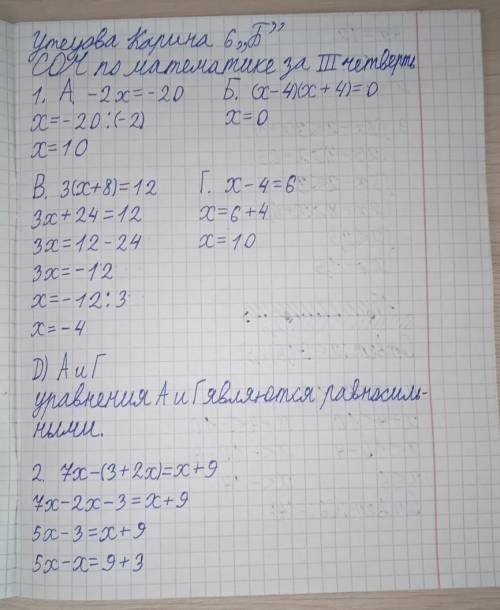 Утеуова Карина 6 „Б”
СОЧ по математике за III четверть
1. А. -2x=-20   Б. (x-4)(x+4)=0
x=-20:(-2)   x=0
x=10
В. 3(x+8)=12   Г. x-4=6
3x+24=12   x=6+4
3x=12-24   x=10
3x=-12
x=-12:3
x=-4
D) А и Г
уравнения А и Г являются равносиль-
ными.
2. 7x-(3+2x)=x+9
7x-2x-3=x+9
5x-3=x+9
5x-x=9+3